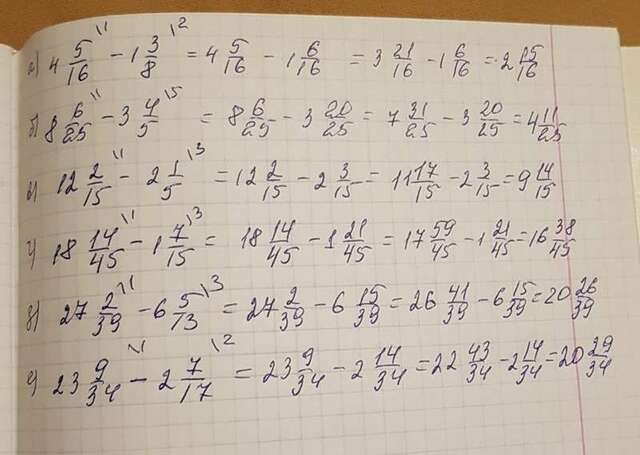 а) 4 5/16 \1 - 1 3/8 \2 = 4 5/16 - 1 6/16 = 3 21/16 - 1 6/16 = 2 15/16
б) 8 6/25 \1 - 3 4/5 \5 = 8 6/25 - 3 20/25 = 7 31/25 - 3 20/25 = 4 11/25
в) 12 2/15 \1 - 2 1/5 \3 = 12 2/15 - 2 3/15 = 11 17/15 - 2 3/15 = 9 14/15
г) 18 14/45 \1 - 1 7/15 \3 = 18 14/45 - 1 21/45 = 17 59/45 - 1 21/45 = 16 38/45
д) 27 2/39 \1 - 6 5/13 \3 = 27 2/39 - 6 15/39 = 26 41/39 - 6 15/39 = 20 26/39
е) 23 9/34 \1 - 2 7/17 \2 = 23 9/34 - 2 14/34 = 22 43/34 - 2 14/34 = 20 29/34